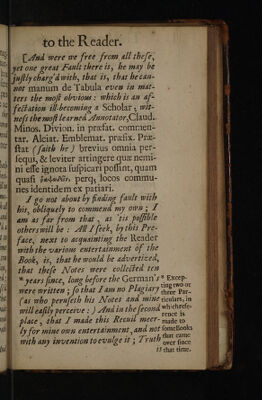 to the Reader.
[And were we free from all these,
yet one great Fault there is, he may be
justly charg'd with, that is, that he can-
not manum de Tabula even in mat-
ters the most obvious: which is an af-
fectation ill-becoming a Scholar; wit-
ness the most learned Annotator, Claud.
Minos. Divion. in præfat. commen-
tar. Alciat. Emblemat. præfix. Præ-
stat (saith he) brevius omnia per-
sequi, & leviter attingere quæ nemi-
ni esse ignota suspicari possint, quam
quasi ῥαψῳδεῖν. perq; locos commu-
nes identidem expatiari.
I go not about by finding fault with
his, obliquely to commend my own; I
am as far from that, as 'tis possible
others will be: All I seek, by this Pre-
face, next to acquainting the Reader
with the various entertainment of the
Book, is, that he would be advertized,
that these Notes were collected ten
* years since, long before the German's
were written; so that I am no Plagiary
(as who peruseth his Notes and mine
will easily perceive:) And in the second
place, that I made this Recuil meer-
ly for mine own entertainment, and not
with any invention to evulge it; Truth
* Excep-
ting two or
three Par-
ticulars, in
which refe-
rence is
made to
some Books
that came
over since
that time.